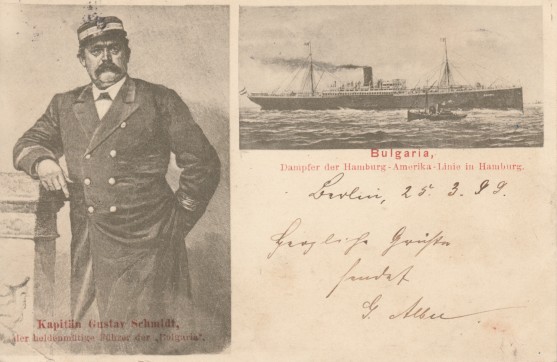 Bulgaria,
Dampfer der Hamburg-Amerika-Linie in Hamburg.
Berlin, 25. 3. 99.
Herzliche Grüße
sendet
Kapitän Gustav Schmidt,
der heldenmütige Führer der „Bulgaria".